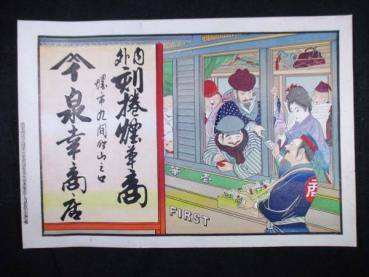 内外
刻捲煙草商
堺市九間町山之口
泉幸商店
壹等
FIRST